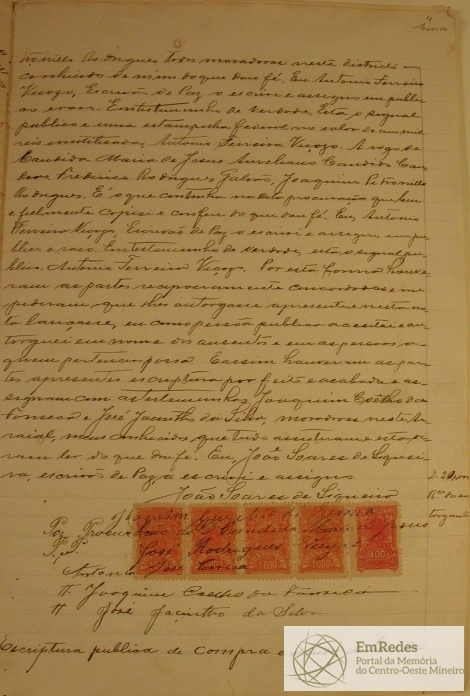 4
Petronillo Rodrigues todos moradores neste districto e
conhecidos de mim do que dou fé. Eu Antonio Ferreira
Viçozo, Escrivão de Paz o escrivi e assigno em publi-
co e razo. Em testemunho de verdade, Esta o signal
publico e uma estampilha federal no valor de um mil
reis inutilisada, Antonio Ferreira Viçozo. A rogo de
Candida Maria de Jesus Aureliano Candido Car-
doso, Frederico Rodrigues Galvão, Joaquim Petronillo
Rodrigues. É o que continha na dita procuração que bem
e fielmente copiei e confiro do que dou fé. Eu, Antonio
Ferreira Viçozo, Escrivão de Paz o escrivi e assigno em pu-
blico e razo. Em testemunho de verdade, esta o signal pu-
blico. Antonio Ferreira Viçozo. Por esta forma houve-
ram as partes reciprocamente concordadas e me
pediram, que lhes outorgasse a presente nesta no-
ta lançasse, eu como pessôa publica acceitei e ou-
torguei em nome dos ausentes e em as pessoas, a
quem pertencer possa. E assim houveram as par-
tes a presente escriptura por feita e acabada e as-
signam com as testemunhas, Joaquim Coêlho da
Fonseca e José Jacintho da Silva, moradores neste Ar-
raial, meus conhecidos, que tudo assistiram e
ram ler do que dou fé. Eu, João Soares de Siquei-
ra, escrivão de Paz a escrevi e assigno
João Soares de Siqueira
Por Procuração de Candida Maria de Jesus
P. p. José Rodrigues
1000 1000 400
Antonio José
Tt. Joaquim Coelho da Fonseca
Tt José Jacintho da Silva
Escriptura publica de compra e
EmRedes
Portal da Memória
do Centro-Oeste Mineiro